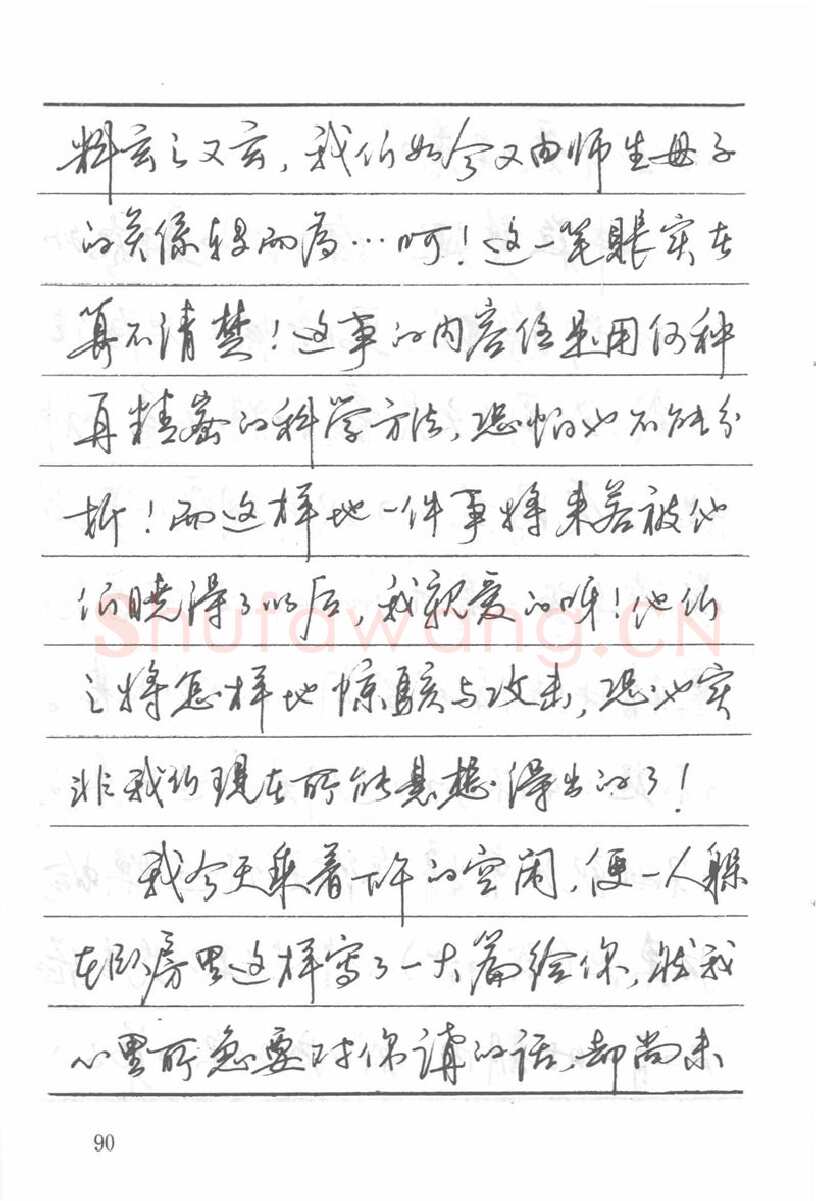 料玄之又玄,我们如今又由师生母子
的关係转而为…呵!这一笔賬实在
算不清楚!这事的内容任是用何种
再精密的科学方法,恐怕也不能分
析!而这样地一件事将来若被他
们晓得了以后,我親爱的呀!他们
之将怎样地惊骇与攻击,恐也实
非我们現在所能悬想得出的了!
我今天乘着下午的空闲,便一人躲
在卧房里这样写了一大篇给你,然我
心里所急要对你講的话,却尚未
Shufawang.CN
90